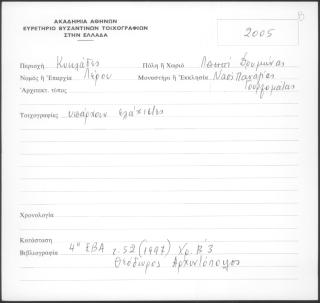 ΑΚΑΔΗΜΙΑ ΑΘΗΝΩΝ
ΕΥΡΕΤΗΡΙΟ ΒΥΖΑΝΤΙΝΩΝ ΤΟΙΧΟΓΡΑΦΙΩΝ
ΣΤΗΝ ΕΛΛΑΔΑ
2005
Περιοχή Κυκλάδες Πόλη ἤ Χωριό
Νομός ἤ Ἐπαρχία Λέρου Μοναστήρι ἤ Ἐκκλησία Ναός Παναγίας
Ἀρχιτεκτ. τύπος Γουρλομάτας
Τοιχογραφίες υπάρχουν ελάχιστες
Χρονολογία
Κατάσταση
Βιβλιογραφία 4η ΕΒΑ τ. 52 (1997) Χρ. Β΄3
Θεόδωρος Αρχοντόπουλος